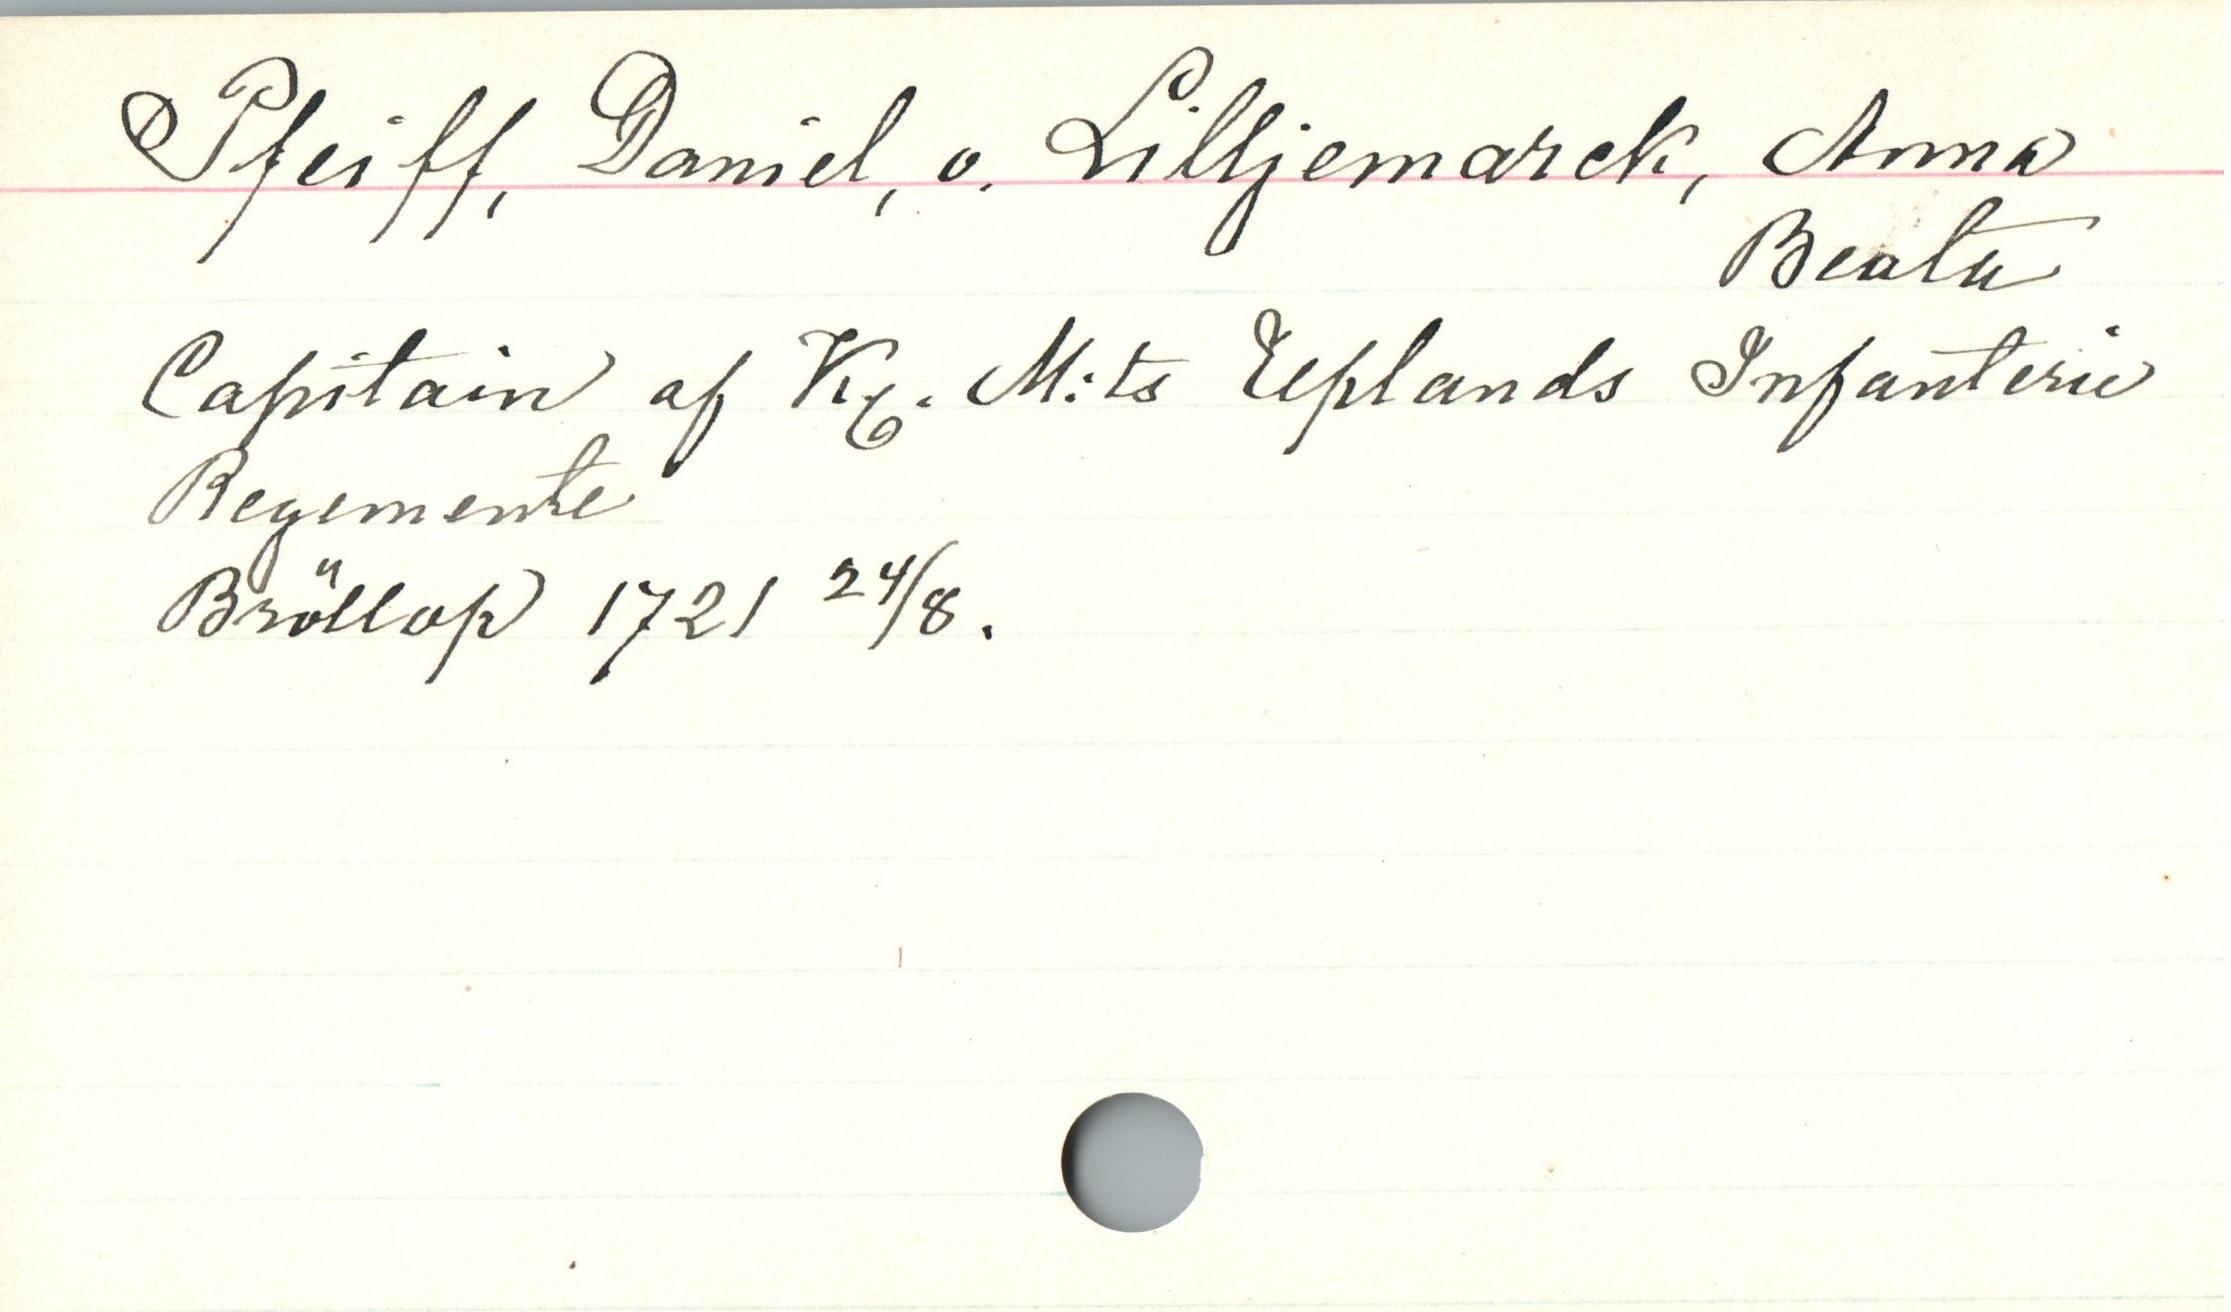 Pfeiff, Daniel, o. Lilljemarck, Anna
Beata
Capitain af Kg. M:ts Uplands Infanterie
Regemente
Bröllop 1721 24/8.